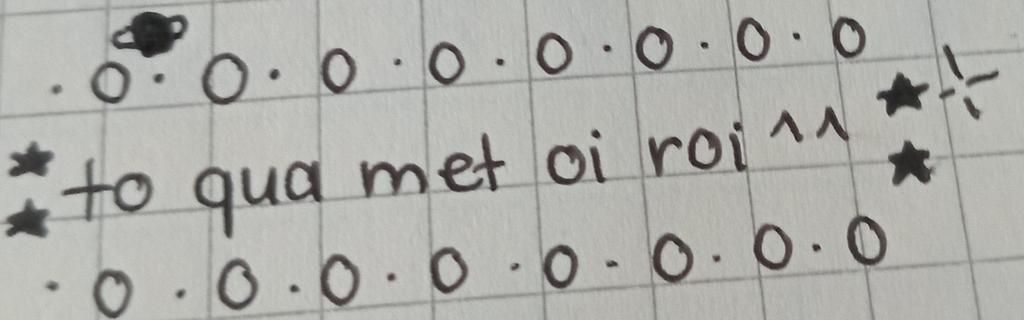 .o.o.o.o.o.o.o.o
to qua met oi roi ^^
.o.o.o.o.o.o.o.o